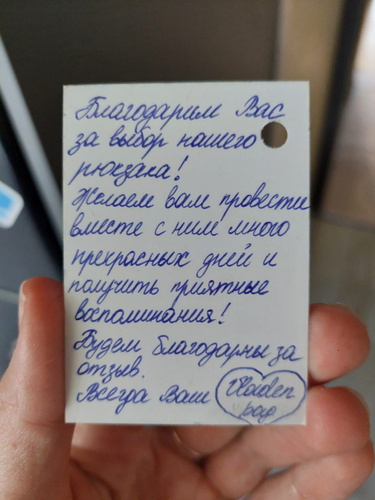 Благодарим Вас
за выбор нашего
рюкзака!
Желаем вам провести
вместе с ним много
прекрасных дней и
получить приятные
воспоминания!
Будем благодарны за
отзыв.
Всегда Ваш